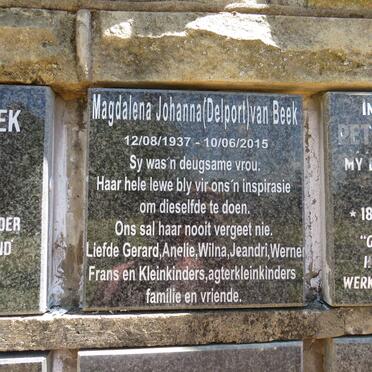 Magdalena Johanna(Delport)van Beek
12/08/1937 - 10/06/2015
Sy was'n deugsame vrou.
Haar hele lewe bly vir ons'n inspirasie
om dieselfde te doen.
Ons sal haar nooit vergeet nie.
Liefde Gerard,Anelie,Wilna,Jeandri,Werner
Frans en Kleinkinders,agterkleinkinders
familie en vriende.
EK
DER
ND
IN
PET
MY
* 18
"G
WERK